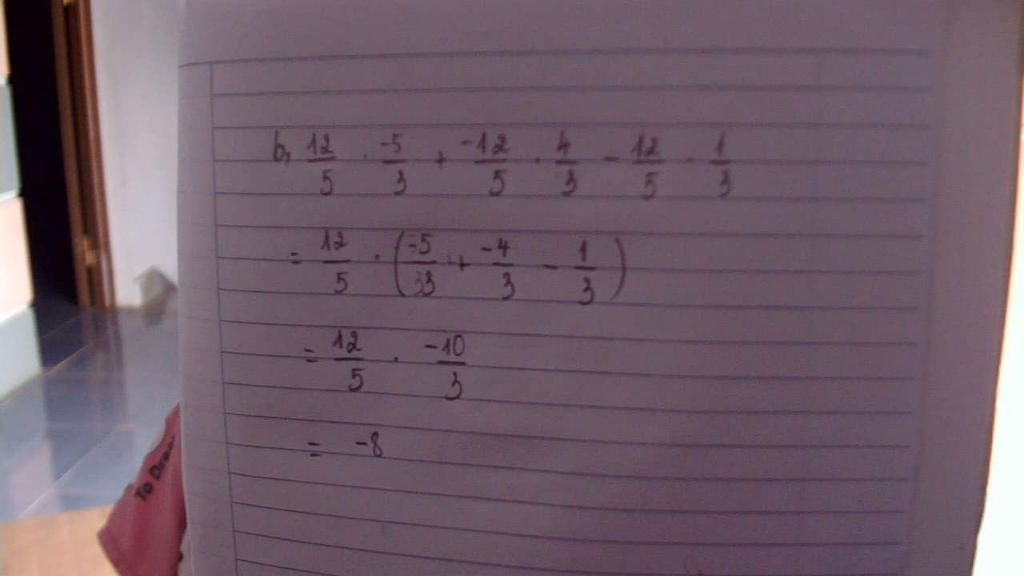 b, 12/5 · -5/3 + -12/5 · 4/3 - 12/5 · 1/3
= 12/5 · (-5/33 + -4/3 - 1/3)
= 12/5 · -10/3
= -8
To Dra